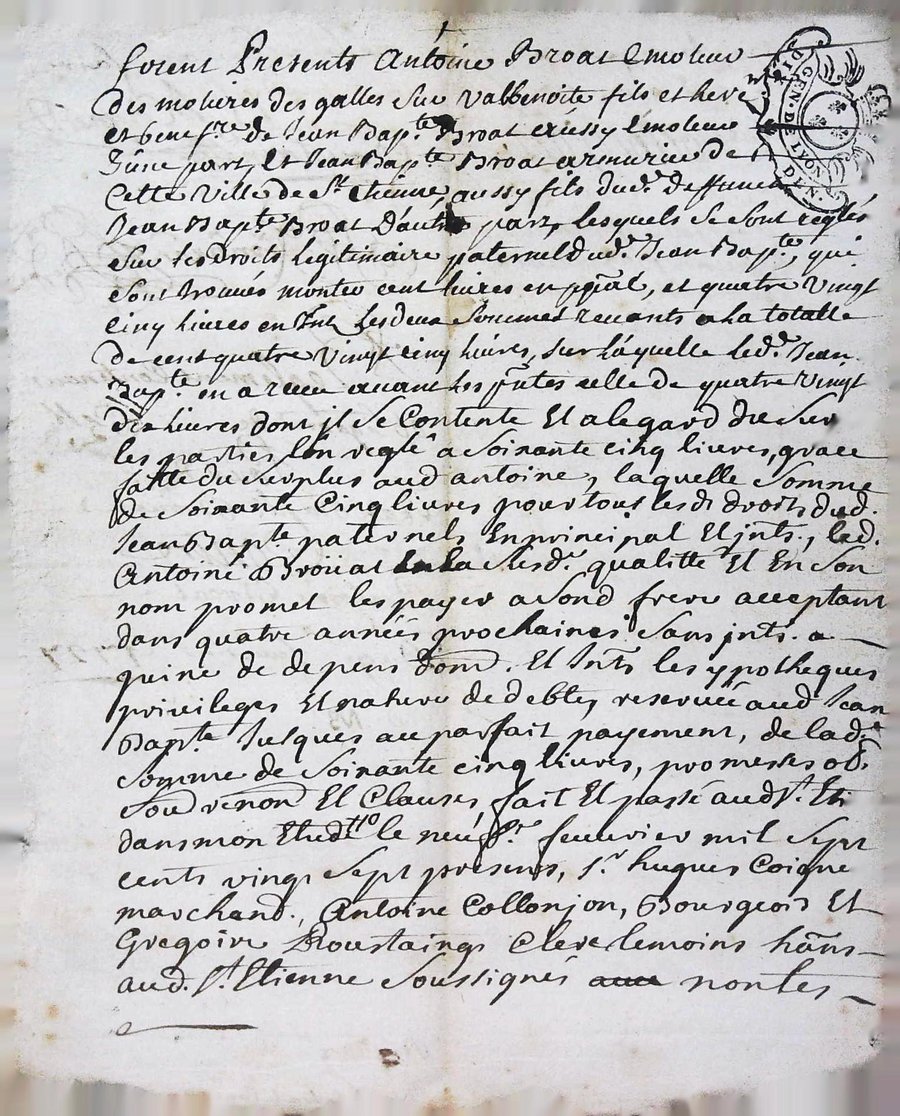 furent Presents Antoine Broat Emoleur
des molieres des galles sur Valbenoite fils et herit
et benefre de Jean Bapte Broat aussy Emoleur
d'une part, Et Jean Bapte Broat armurier de
Cette Ville de St Etienne, aussy fils dud. deffunct
Jean Bapte Broat D'autre part, lesquels se sont reglés
sur les Droits legitimaire paternel dud. Jean Bapte, qui
sont trouués monter cent liures en ppal, et quatre vingt
cinq liures en Int. les deux sommes reuants a la totalle
de cent quatre vingt cinq liures, sur laquelle led. Jean
Bapte en a receu auant les pntes celle de quatre vingt
dix liures dont jl se Contente Et a legard du sur
les parties l'on reglé a soixante cinq liures, grace
faitte du surplus aud antoine, laquelle somme
de soixante Cinq liures pour tous lesd. droits dud.
Jean Bapte paternels En principal Et jnts., led.
Antoine Broüat en la susd. qualitté Et En son
nom promet les payer a sond frere acceptant
dans quatre années prochaines sans jnts. a
peine de depens dom. Et Ints les ypotheques
priuileges Et nature de debte, reseruée aud Jean
Bapte Jusques au parfait payement, de lad.
somme de soixante cinq liures, promesses ob.
soub renon Et Clauses fait Et passé aud St. Eti
dans mon Etude le neuf fevrier mil sept
cents vingt sept presens, sr. hugues Coigne
marchand, Antoine Collonjon, Bourgeois Et
Gregoire Roustaing Clerc temoins hans
aud. St. Etienne soussignés non les
GEN. DE LYON